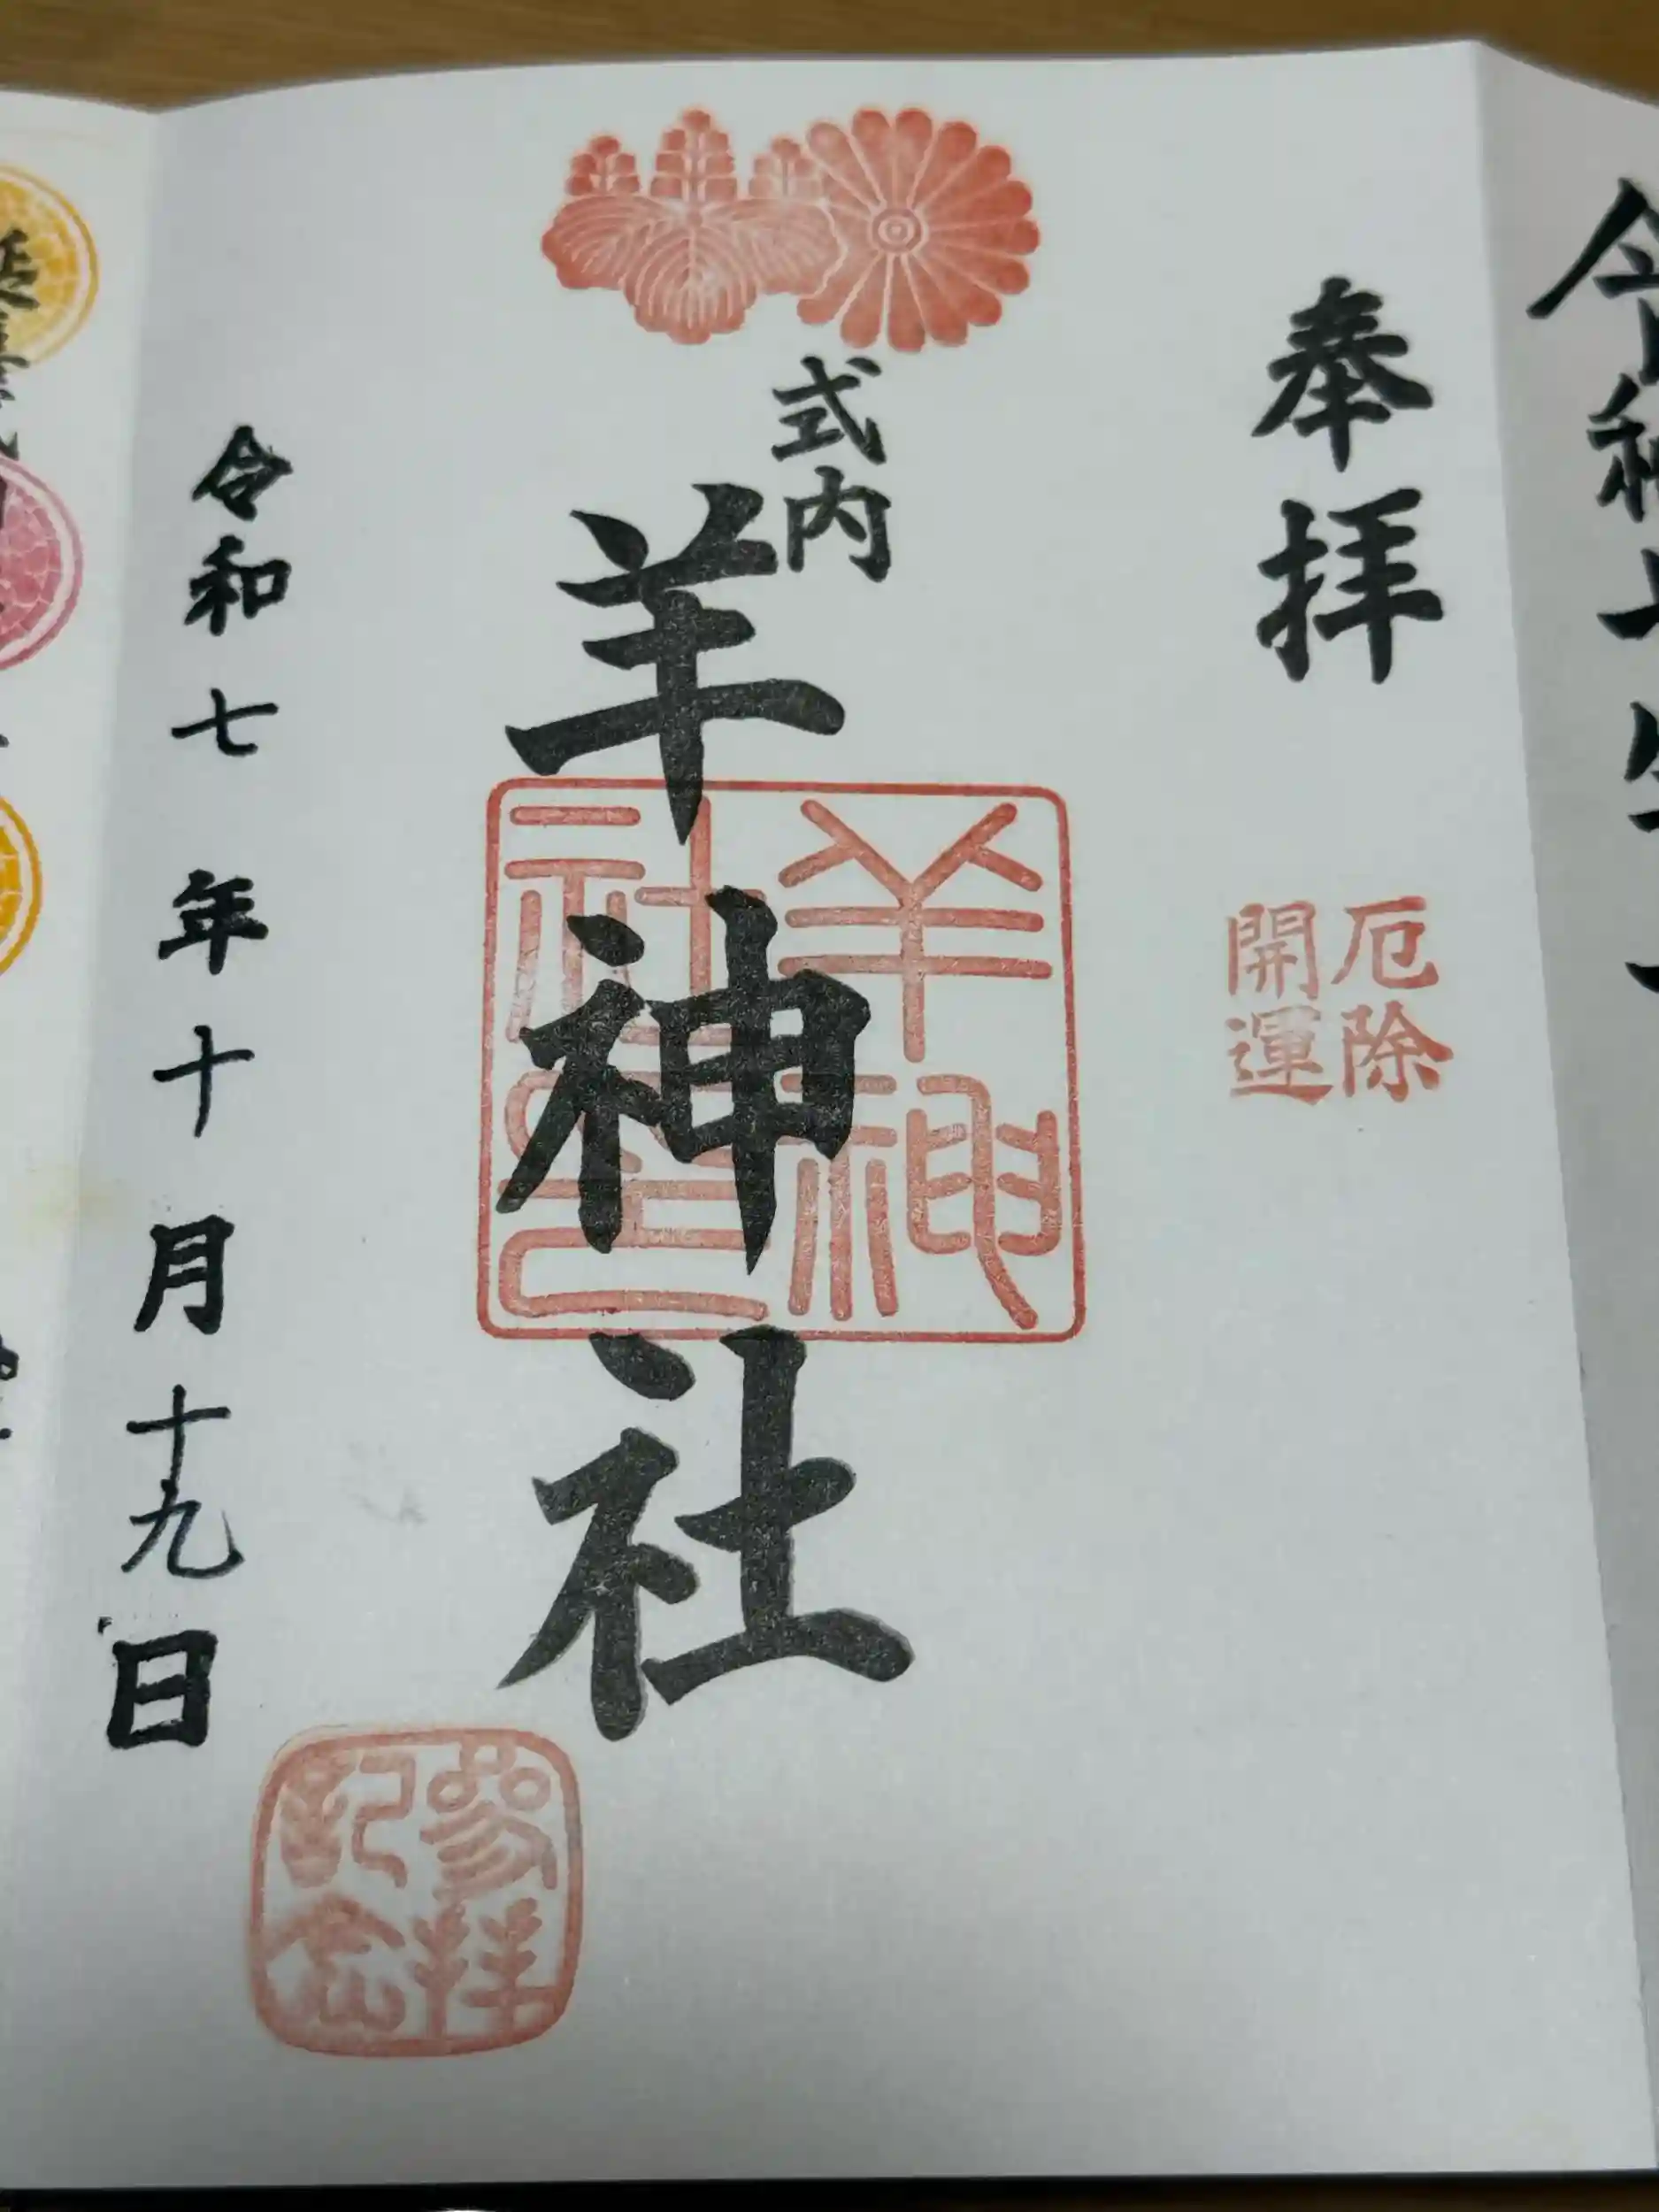 奉拝
厄除
開運
式内
羊神社
羊神
社
参拝
記念
令和七年十月十九日